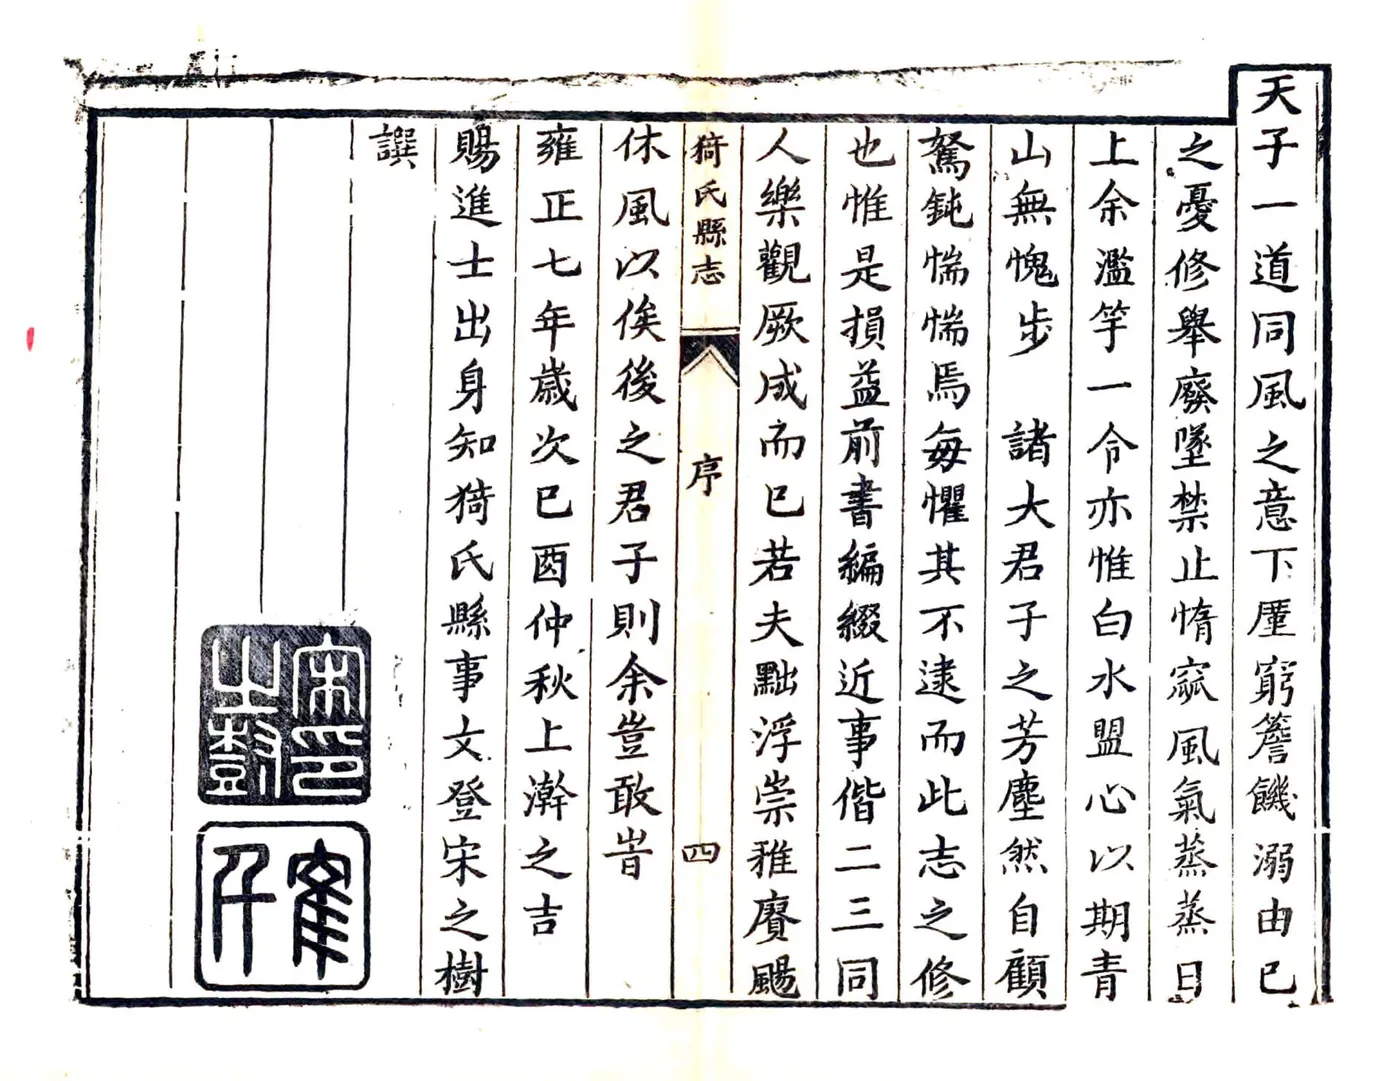 天子一道同風之意下厪窮簷饑溺由已
之憂修舉廢墜禁止惰窳風氣蒸蒸日
上余濫竽一令亦惟白水盟心以期青
山無愧步　諸大君子之芳塵然自顧
駑鈍惴惴焉每懼其不逮而此志之修
也惟是損益前書編綴近事偕二三同
人樂觀厥成而已若夫黜浮崇雅賡颺
猗氏縣志　序　四
休風以俟後之君子則余豈敢旹
雍正七年歲次已酉仲秋上澣之吉
賜進士出身知猗氏縣事文登宋之樹
譔
宋印之樹